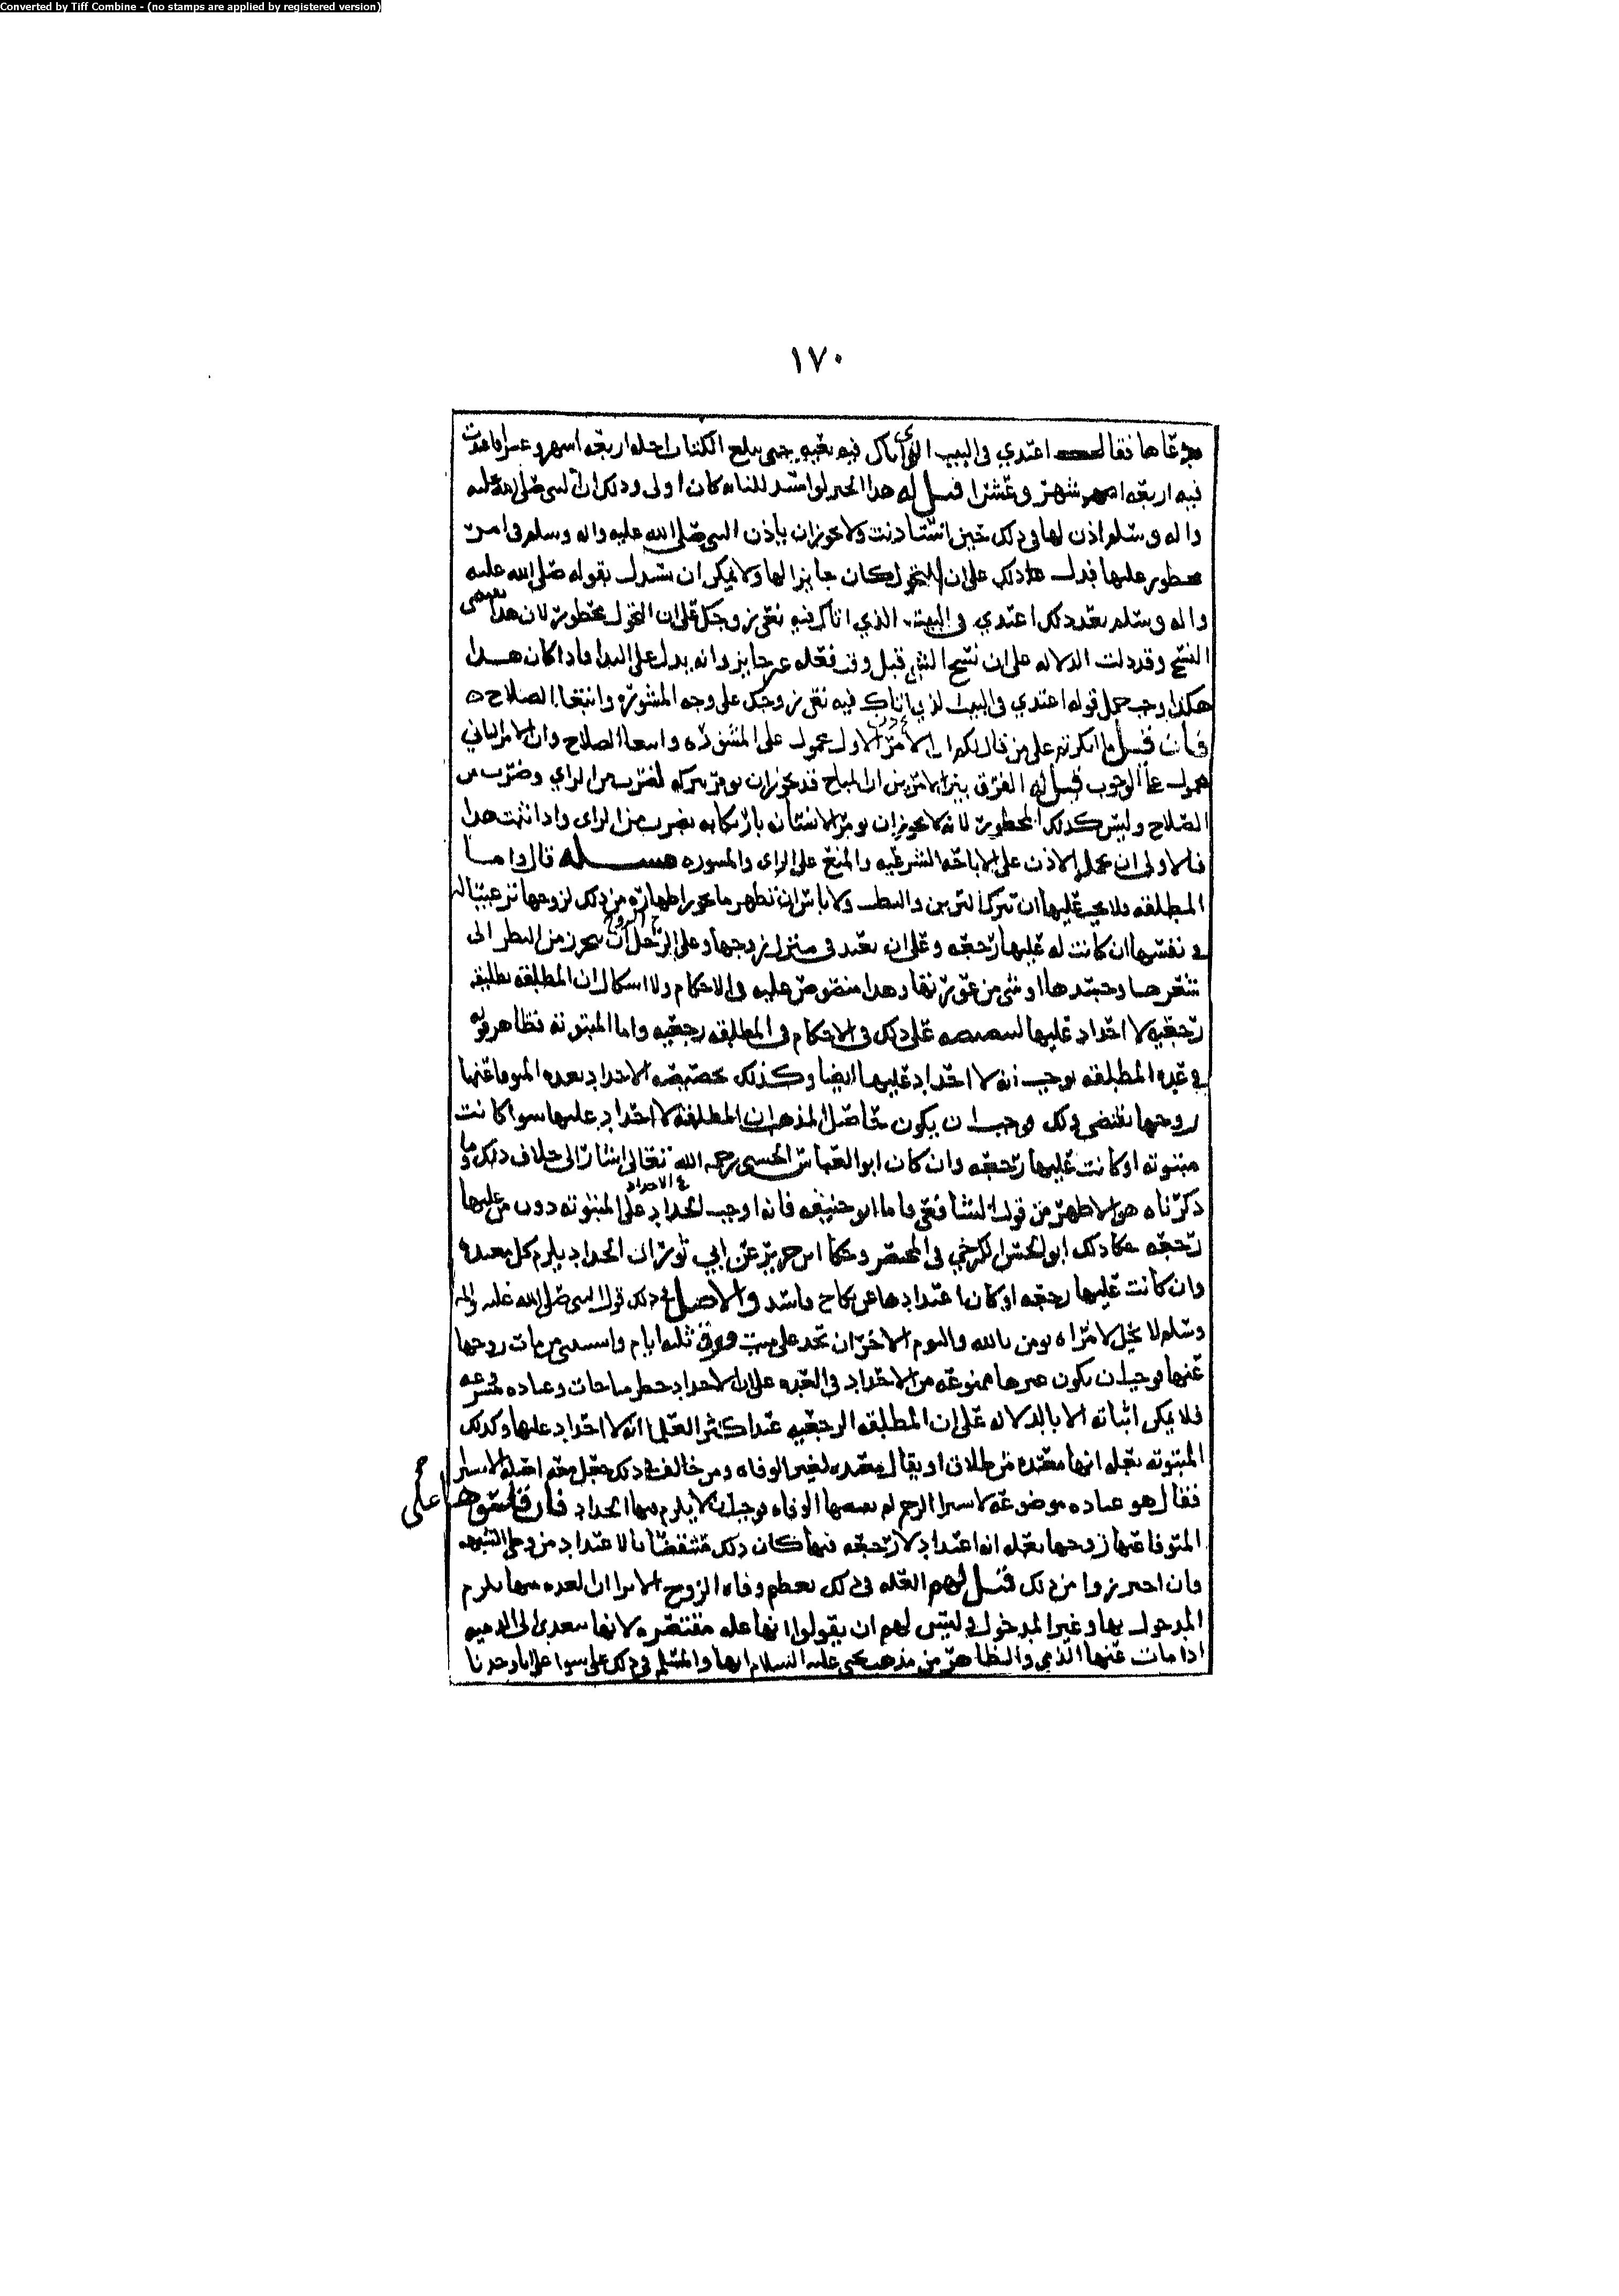 Converted by Tiff Combine - (no stamps are applied by registered version)
١٧٠
فدعاها فقال اعتدي في البيت الذي أتاك فيه نعيه حتى يبلغ الكتاب اجله اربعه اسهر وعشرا فاعتدت
فيه اربعه اشهر وعشرا قيل له هذا الخبر لو استدللنا به كان اولى وذلك ان النبي صلى الله عليه
واله وسلم اذن لها في ذلك حين استاذنت ولا يجوز ان ياذن النبي صلى الله عليه واله وسلم في امر
محظور عليها فدل ذلك على ان التحول كان جايزا لها ولا يمكن ان يستدل بقوله صلى الله عليه
واله وسلم بعد ذلك اعتدي في البيت الذي اتاك فيه نعي زوجك على ان التحول محظور لان هذا يقتضي
النسخ وقد دلت الدلاله على ان نسخ الشي قبل وقت فعله غير جايز وانه يدل على البدا فاذا كان هذا
هكذا وجب حمل قوله اعتدي في البيت الذي اتاك فيه نعي زوجك على وجه المشوره وابتغا الصلاح
فان قيل ما انكرتم على من قال لكم ان الامر الاول محمول على المشوره وابتغا الصلاح وان الامر الثاني
محمول على الوجوب قيل له الفرق بين الامرين ان المباح قد يجوز ان يومر بتركه لضرب من الراي وضرب من
الصلاح وليس كذلك المحظور لانه لا يجوز ان يومر الانسان بارتكابه بضرب من الراى واذا ثبت هذا
فالاولى ان يحمل الاذن على الاباحه الشرعيه والمنع على الراى والمشوره مسئله قال واما
المطلقه فلا يجب عليها ان تترك التزين والتطيب ولا باس ان تظهر ما يجوز اظهاره من ذلك لزوجها ترغيبا له
في نفسها ان كانت له عليها رجعه وعلى ان تعتد في منزل زوجها وعلى الرجل ان يحترز من النظر الى
شعرها وجسدها او شي من عورتها وهذا منصوص عليه في الاحكام ولا اشكال ان المطلقه تطليقه
رجعيه لا احداد عليها لتنصيصه على ذلك في الاحكام في المطلقه رجعيه واما المبتوته فظاهر قوله
في عده المطلقه يوجب انه لا احداد عليها ايضا وكذلك تخصيصه الاحداد بعده المتوفا عنها
زوجها يقتضي ذلك فوجب ان يكون حاصل المذهب ان المطلقه لا احداد عليها سوا كانت
مبتوته او كانت عليها رجعه وان كان ابو العباس الحسني رحمه الله تعالى اشار الى خلاف ذلك وما
ذكرناه هو الاظهر من قول الشافعي فاما ابو حنيفه فانه اوجب الحداد على المبتوته دون من عليها
رجعه حكا ذلك ابو الحسن الكرخي في المختصر وحكا ابن جرير عن ابي ثور ان الحداد يلزم كل معتده
وان كانت عليها رجعه او كان اعتدادها عن نكاح فاسد والاصل في ذلك قول النبي صلى الله عليه واله
وسلم لا يحل لامراه تومن بالله واليوم الاخر ان تحد على ميت فوق ثلثه ايام واستثنى من مات زوجها
عنها فوجب ان يكون غيرها ممنوعه من الاحداد في العده على ان الاحداد حظر مباحات وعباده مشروعه
فلا يمكن اثباته الا بالدلاله على ان المطلقه الرجعيه عند اكثر العلما انه لا احداد عليها وكذلك
المبتوته بعله انها معتده من طلاق او يقال معتده لغير الوفاه ومن خالف في ذلك جعل معه اصله الاستبرا
فقال هو عباده موضوعه لاستبرا الرحم لم يتضمنها الوفاه فوجب ان لا يلزم فيها الحداد فان قاسوها على
المتوفا عنها زوجها بعله انه اعتداد لا رجعه فيها كان ذلك منتقضا بالاعتداد من وطي الشبهه
وان احترزوا من ذلك قيل لهم العله في ذلك تعظيم وفاه الزوج الا ترا ان العده فيها يلزم
المدخول بها وغير المدخول وليس لهم ان يقولوا انها عله مقتصره لانها تتعدى الى الذميه
اذا مات عنها الذمي والظاهر من مذهب يحيى عليه السلام انها والمسلم في ذلك على سوا على انا وجدنا